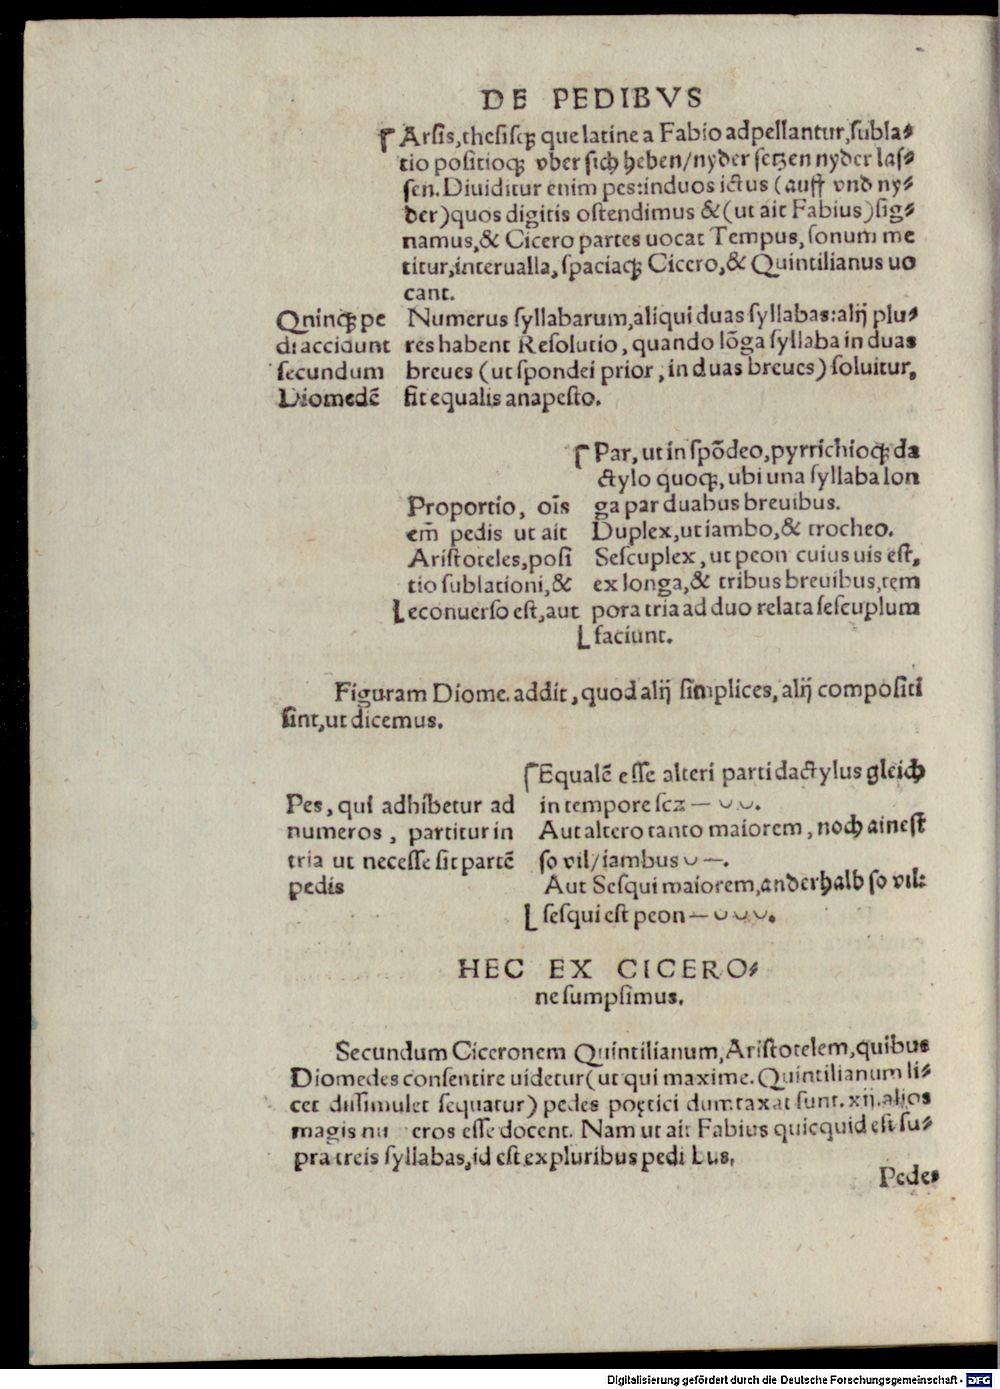 DE PEDIBVS
Arsis, thesisqꝫ que latine a Fabio adpellantur, subla⸗
tio positioqꝫ vber sich heben/nyder setzen nyder las⸗
sen. Diuiditur enim pes: in duos ictus (auff vnd ny⸗
der) quos digitis ostendimus & (ut ait Fabius) sig⸗
namus, & Cicero partes uocat Tempus, sonum me
titur, interualla, spaciaqꝫ Cicero, & Quintilianus uo
cant.
Qninqꝫ pe
di accidunt
secundum
Diomedē
Numerus syllabarum, aliqui duas syllabas: alij plu⸗
res habent Resolutio, quando lōga syllaba in duas
breues (ut spondei prior, in duas breues) soluitur,
fit equalis anapesto.
Proportio, oīs
em̄ pedis ut ait
Aristoteles, posi
tio sublationi, &
econuerso est, aut
Par, ut in spōdeo, pyrrichioqꝫ da
ctylo quoqꝫ, ubi una syllaba lon
ga par duabus breuibus.
Duplex, ut iambo, & trocheo.
Sescuplex, ut peon cuius uis est,
ex longa, & tribus breuibus, tem
pora tria ad duo relata sescuplum
faciunt.
Figuram Diome. addit, quod alij simplices, alij compositi
sint, ut dicemus.
Pes, qui adhibetur ad
numeros, partitur in
tria ut necesse sit partē
pedis
Equalē esse alteri parti dactylus gleich
in tempore scz — ◡◡.
Aut altero tanto maiorem, noch ainest
so vil/iambus ◡ —.
Aut Sesqui maiorem, anderhalb so vil:
sesqui est peon — ◡◡◡.
HEC EX CICERO⸗
ne sumpsimus.
Secundum Ciceronem Quintilianum, Aristotelem, quibus
Diomedes consentire uidetur (ut qui maxime. Quintilianum li⸗
cet dissimulet sequatur) pedes poętici dumtaxat sunt. xij. alios
magis eros esse docent. Nam ut ait Fabius quicquid est su⸗
pra treis syllabas, id est ex pluribus pedi
Pedes
Digitalisierung gefördert durch die Deutsche Forschungsgemeinschaft - DFG